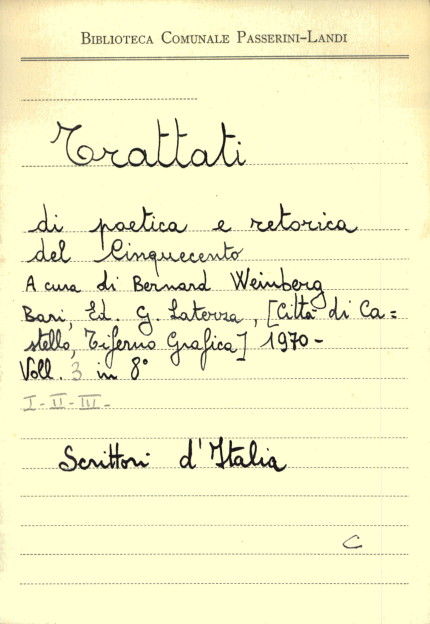 BIBLIOTECA COMUNALE PASSERINI-LANDI
Trattati
di poetica e retorica
del Cinquecento
A cura di Bernard Weinberg
Bari, Ed. G. Laterza, [Città di Ca=
stello, Tiferno Grafica] 1970-
Voll. 3 in 8°
I-II-III-
Scrittori d'Italia
C